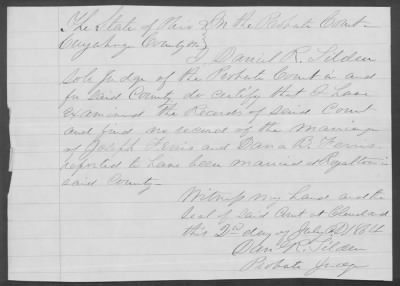 The State of Ohio } In the Probate Court
Cuyahoga County ss }
I Daniel R. Tilden
sole judge of the Probate Court in and
for said County do certify that I have
examined the Records of said Court
and find no record of the marriage
of Joseph Ferris and Dana B. Ferris
reported to have been married at Royalton in
said County
Witness my hand and the
seal of said Court at Cleveland
this 2nd day of July AD 1864
Dan R. Tilden
Probate Judge